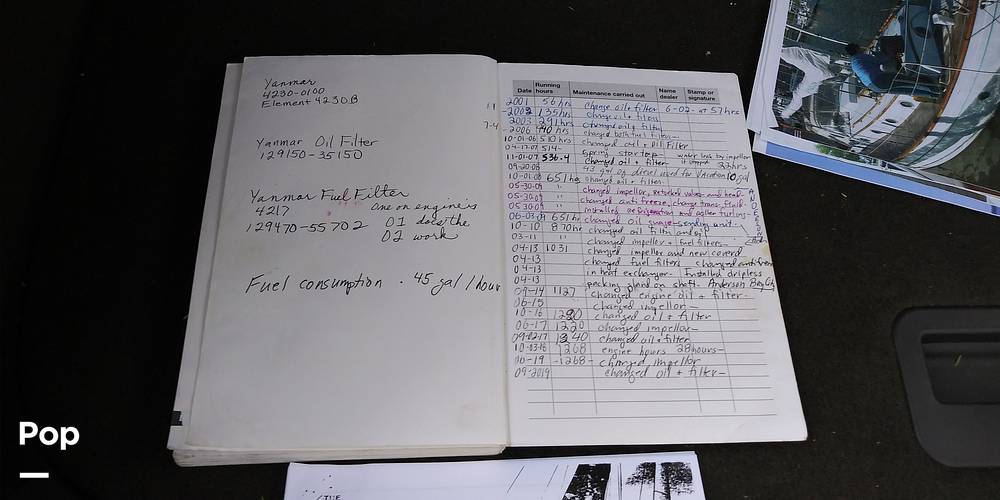 Yanmar
4230-0100
Element 4230B
Yanmar Oil Filter
129150-35150
Yanmar Fuel Filter
4217 One on engine is
129470-55702 01 does the
02 work
Fuel consumption .45 gal / hour
Date Running hours Maintenance carried out Name dealer Stamp or signature
2001 56 hrs change oil + filter 6-02- at 57 hrs
2002 135 hrs change oil + filter
2003 291 hrs changed oil + filter
2006 410 hrs changed both fuel filters
10-01-06 510 hrs changed oil + Oil Filter
04-17-07 514- Spring start up - water leak by impeller
11-01-07 536.4 changed oil + filter 22 hrs
09-20-08 45 gal of diesel used for Vacation 10 gal
10-01-08 651 hrs changed oil + filter
05-30-09 " changed impeller, and
05-30-09 " changed anti freeze, change trans. fluid
05-30-09 " Installed refrigeration and
06-03-09 651 hrs changed oil sending unit
10-10 870 hr changed oil filter and oil
03-11 " changed impeller + fuel filters
04-13 1031 changed impeller and new cover
04-13 changed fuel filters changed antifreeze
04-13 in heat exchanger Installed dripless
04-13 packing gland on shaft. Anderson Bay City
09-14 1127 changed engine oil + filter
06-15 changed impellor
10-16 1220 changed oil + filter
06-17 1220 changed impellor
09-02-17 1240 changed oil + filter
10-03-18 1268 engine hours 28 hours
06-19 -1268- changed impellor
09-2019 changed oil + filter
THE
Pop